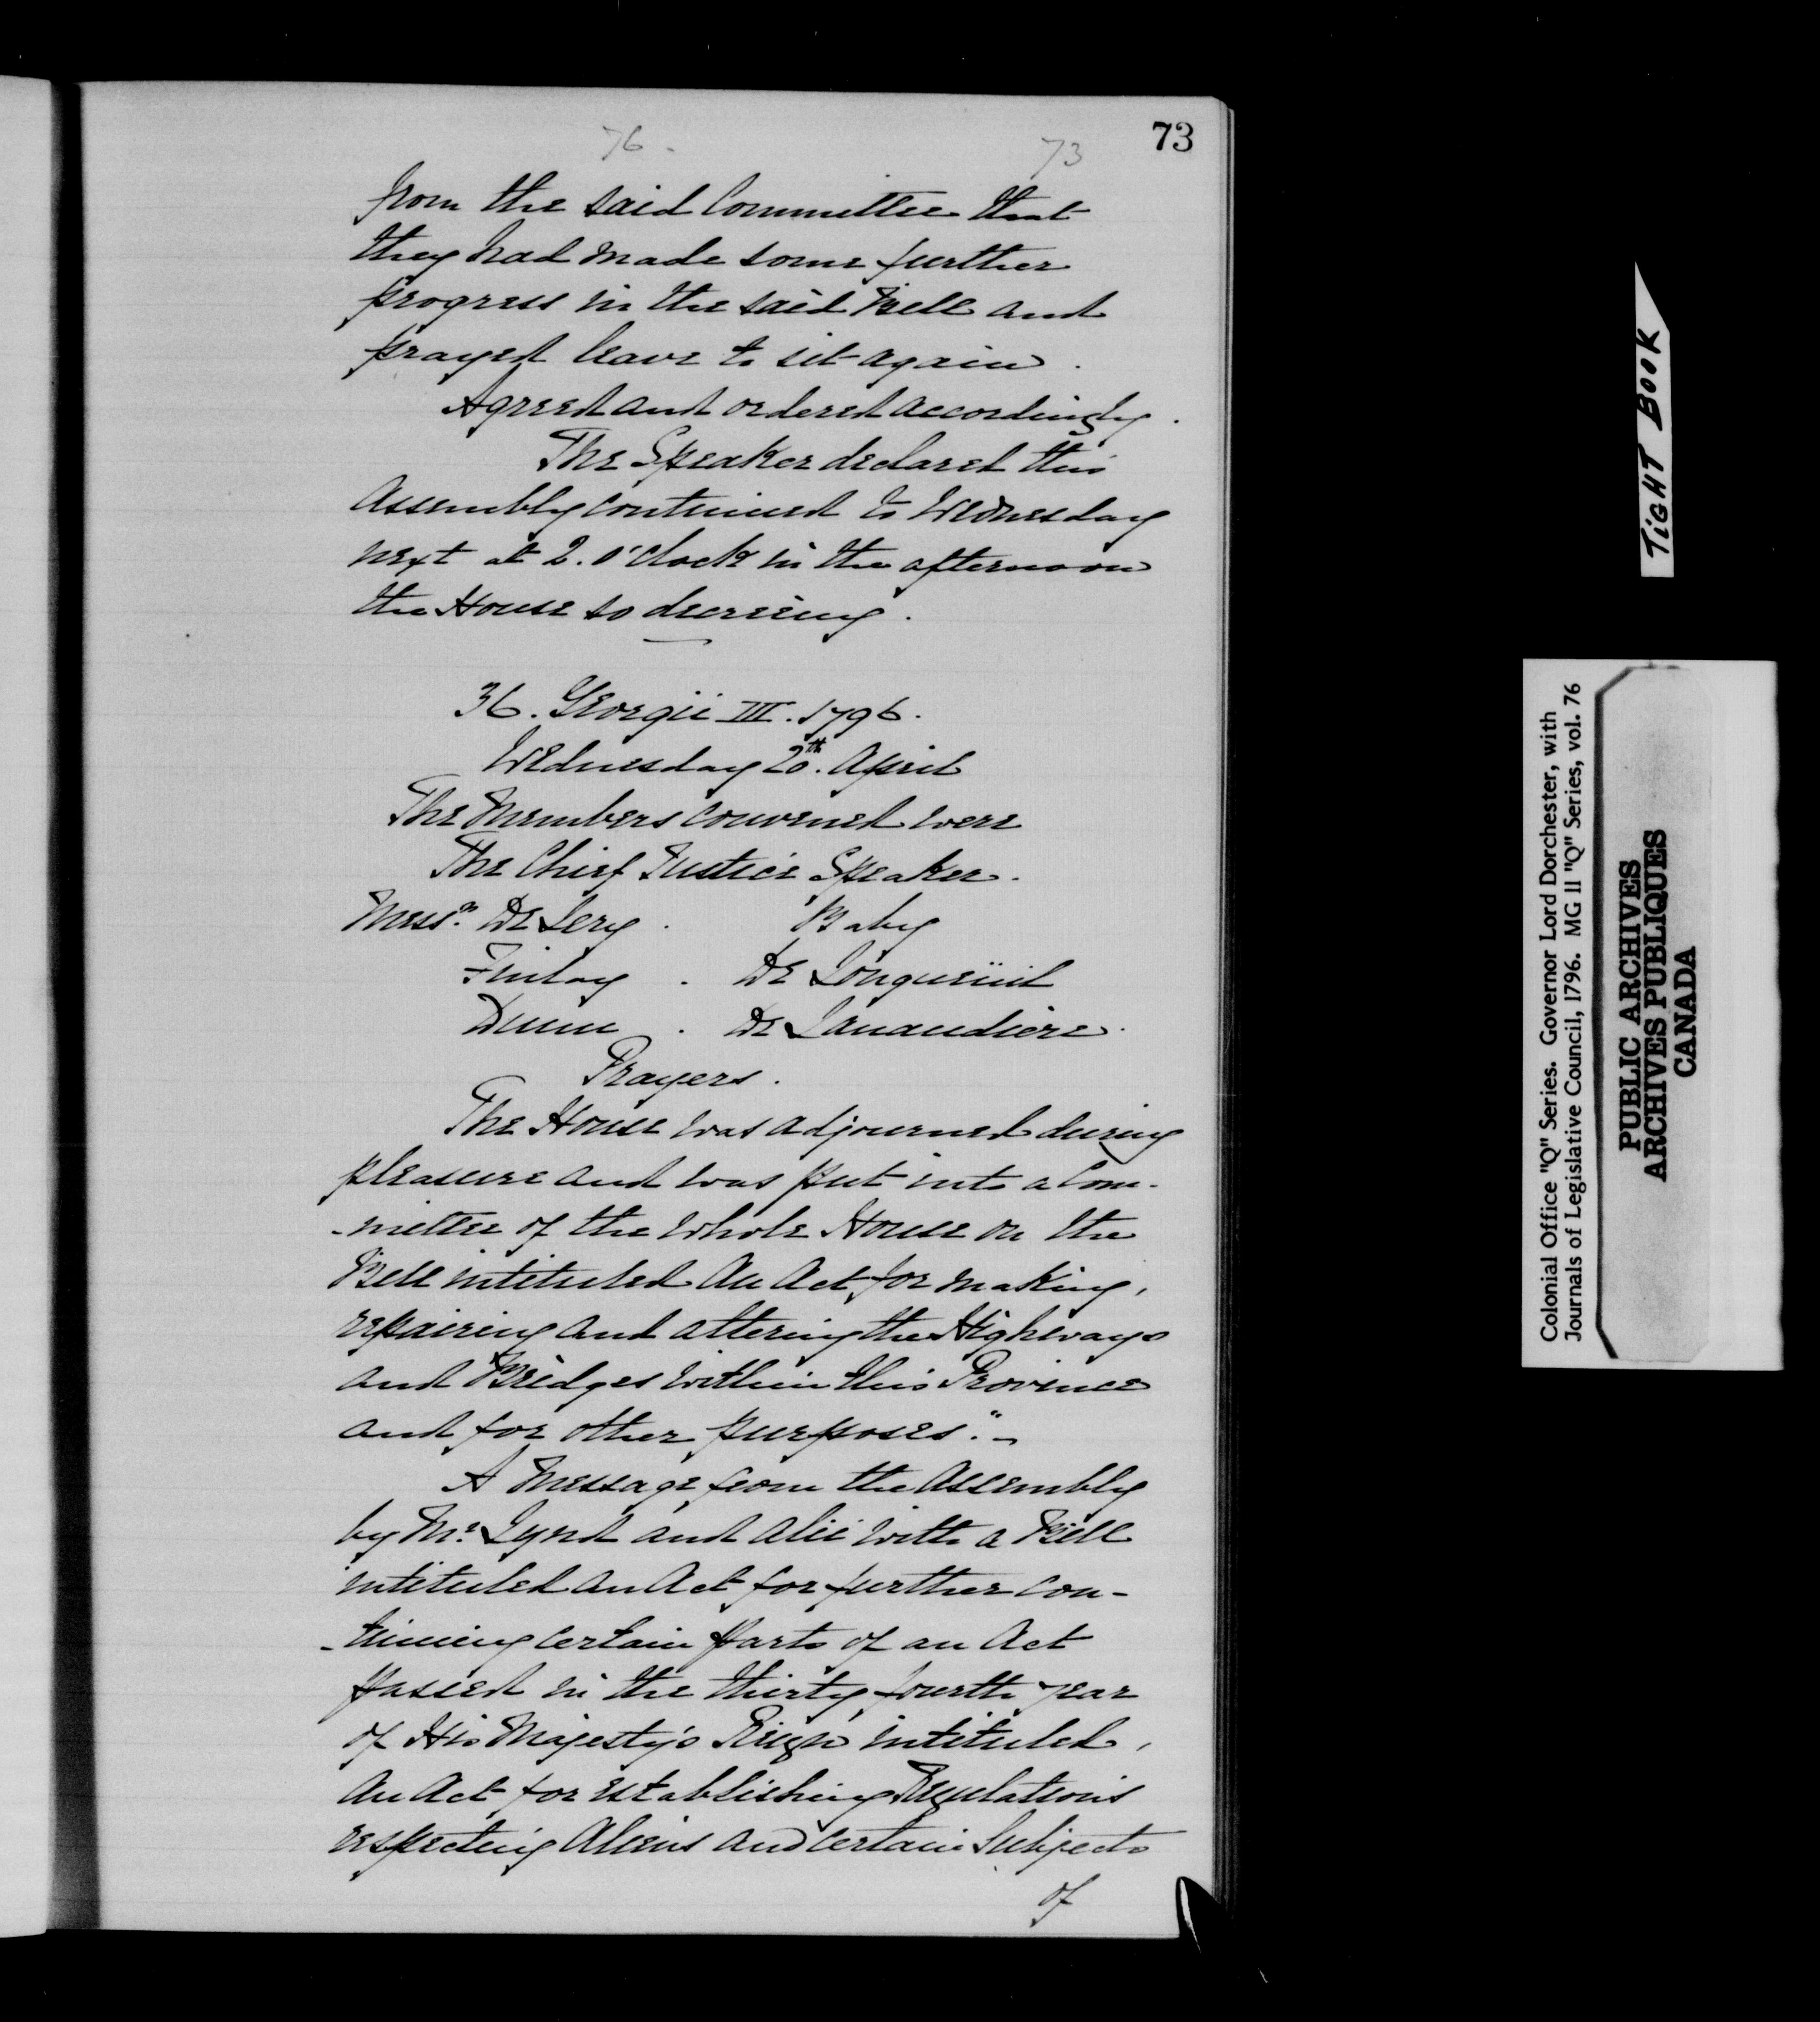 76.
73
73
from the said Committee that
they had made some further
progress in the said Bill and
prayed leave to sit again.
Agreed and ordered accordingly.
The Speaker declared this
Assembly continued to Wednesday
next at 2. o'clock in the afternoon
the House so decreeing.
36. Georgii III. 1796.
Wednesday 20th. April
The Members convened were
The Chief Justice Speaker.
Messrs. De Lery. Baby
Finlay. De Longueüil
Dunn. De Lanaudiere.
Prayers.
The House was adjourned during
pleasure and was put into a Com-
-mittee of the whole House on the
Bill intituled An Act for making,
repairing and altering the Highways
and Bridges within this Province
and for other purposes."-
A Message from the Assembly
by Mr. Lynd and alii with a Bill
intituled an Act for further con-
-tinuing certain parts of an Act
passed in the thirty fourth year
of His Majesty's Reign intituled,
An Act for establishing Regulations
respecting Aliens and certain Subjects
of
TiGHT BOOK
Colonial Office "Q" Series. Governor Lord Dorchester, with
Journals of Legislative Council, 1796. MG 11 "Q" Series, vol. 76
PUBLIC ARCHIVES
ARCHIVES PUBLIQUES
CANADA